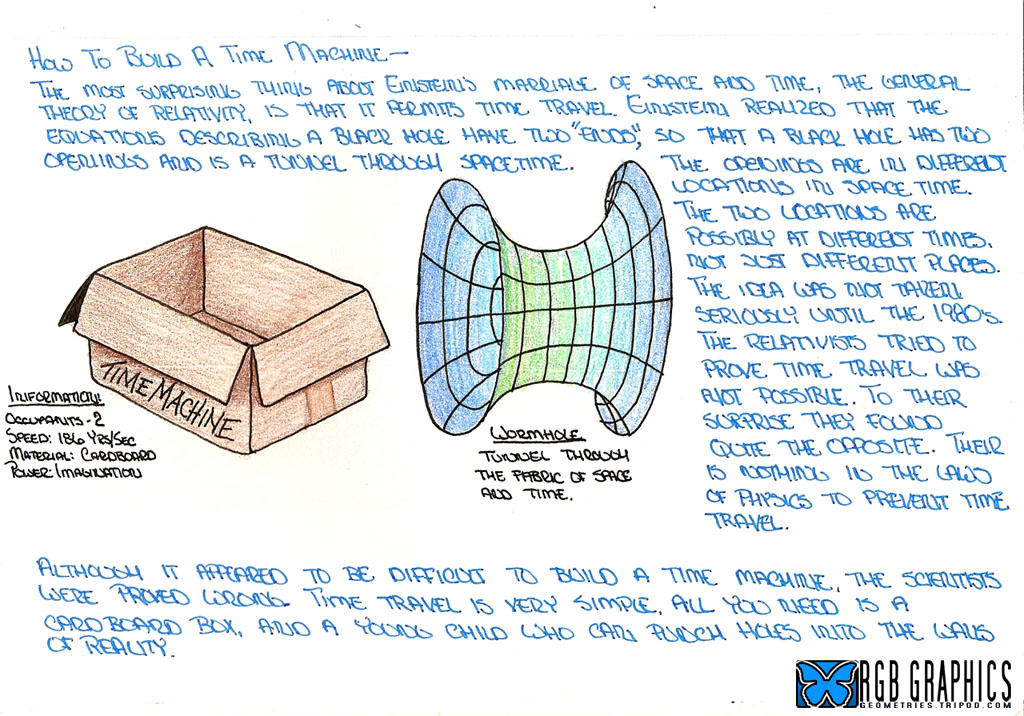 How To Build A Time Machine—
The most surprising thing about Einstein's marriage of space and time, the general
theory of relativity, is that it permits time travel. Einstein realized that the
equations describing a black hole have two "ends", so that a black hole has two
openings and is a tunnel through spacetime.
The openings are in different
locations in space time.
The two locations are
possibly at different times,
not just different places.
The idea was not taken
seriously until the 1980's.
The relativists tried to
prove time travel was
not possible. To their
surprise they found
quite the opposite. Their
is nothing in the laws
of physics to prevent time
travel.
TIME MACHINE
Information:
Occupants - 2
Speed: 186 Yrs/Sec
Material: Cardboard
Power: Imagination
Wormhole
Tunnel through
the fabric of space
and time.
Although it appeared to be difficult to build a time machine, the scientists
were proved wrong. Time travel is very simple, all you need is a
cardboard box, and a young child who can punch holes into the walls
of reality.
RGB GRAPHICS
GEOMETRIES.TRIPOD.COM